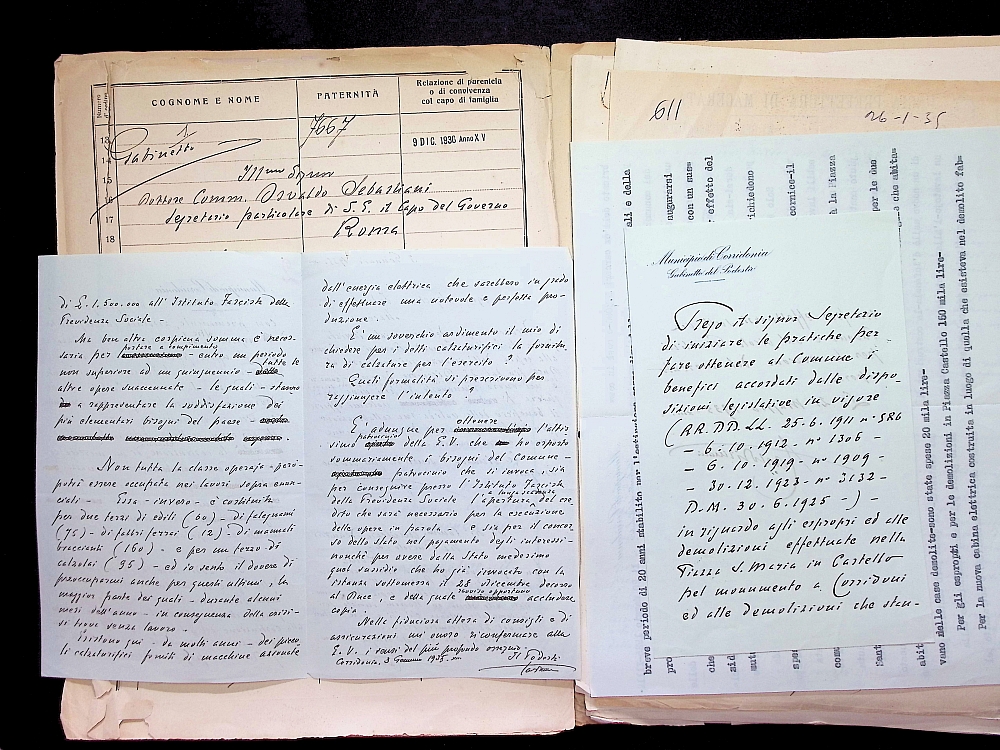 Numero d'ordine
COGNOME E NOME
PATERNITÀ
Relazione di parentela
o di convivenza
col capo di famiglia
13
14
15
16
17
18
1
7667
9 DIC. 1936 Anno XV
Gabinetto
Ill.mo Signor
Dottore Comm. Osvaldo Sebastiani
Segretario particolare di S. E. il Capo del Governo
Roma
di £. 1.500.000 all'Istituto Fascista della
Previdenza Sociale -
Ma ben altra cospicua somma è neces-
saria per portare a compimento - entro un periodo
non superiore ad un quinquennio - tutte le
altre opere suaccennate - le quali - stanno
a rappresentare la soddisfazione dei
più elementari bisogni del paese -
Non tutta la classe operaja - però -
potrà essere occupata nei lavori sopra enun-
ciati - Essa - invero - è costituita
per due terzi di edili (60) - di falegnami
(75) - di fabbri ferrai (12) - di manuali
braccianti (160) - e per un terzo di
calzolai (95) - ed io sento il dovere di
preoccuparmi anche per questi ultimi, la
maggior parte dei quali - durante alcuni
mesi dell'anno - in conseguenza della crisi -
si trova senza lavoro -
Esistono qui - da molti anni - dei picco-
li calzaturifici forniti di macchine azionate
dall'energia elettrica che sarebbero in grado
di effettuare una notevole e perfetta pro-
duzione -
È un soverchio ardimento il mio di
chiedere per i detti calzaturifici la fornitu-
ra di calzature per l'esercito ?
Quali formalità si prescrivono per
raggiungere l'intento ?
È adunque per ottenere l'altis
simo patrocinio della E. V. che ho esposto
sommariamente i bisogni del Comune -
patrocinio che si invoca, sia
per conseguire presso l'Istituto Fascista
della Previdenza Sociale l'apertura del cre
a lunga scadenza
dito che sarà necessario per la esecuzione
delle opere in parola - e sia per il concor
so dello Stato nel pagamento degli interessi -
nonchè per avere dallo Stato medesimo
quel sussidio che ho già invocato con la
istanza sottomessa il 28 dicembre decorso
al Duce, e della quale ravviso opportuno accludere
copia.
Nella fiduciosa attesa di consigli e di
assicurazioni mi onoro riconfermare alla
E. V. i sensi del più profondo ossequio -
Corridonia, 3 Gennaio 1935. XIII
Il Podestà
611
26-1-35
Municipio di Corridonia
Gabinetto del Podestà
Prego il signor Segretario
di iniziare le pratiche per
fare ottenere al Comune i
benefici accordati dalle dispo-
sizioni legislative in vigore
(RR. DD. LL. 25-6-1911 n° 586
- 6-10-1912 - n° 1306 -
- 6-10-1919 - n° 1909 -
- 30-12-1923 - n° 3132 -
D. M. 30-6-1925 -) -
in riguardo agli espropri ed alle
demolizioni effettuate nella
Piazza S. Maria in Castello
pel monumento a Corridoni
ed alle demolizioni che stan-
ali e della
augurarsi
con un sus=
effetto del
richiedono
cornice-il
à la Piazza
per le due
che abita=
breve periodo di 20 anni stabilito per l'
pro
che
sid
mut
spe
com
Sant
abit
vano nelle case demolite-sono state spese 20 mila lire-
Per gli espropri e per le demolizioni in Piazza Castello 150 mila lire-
Per la nuova cabina elettrica costruita in luogo di quella che esisteva nel demolito fab=